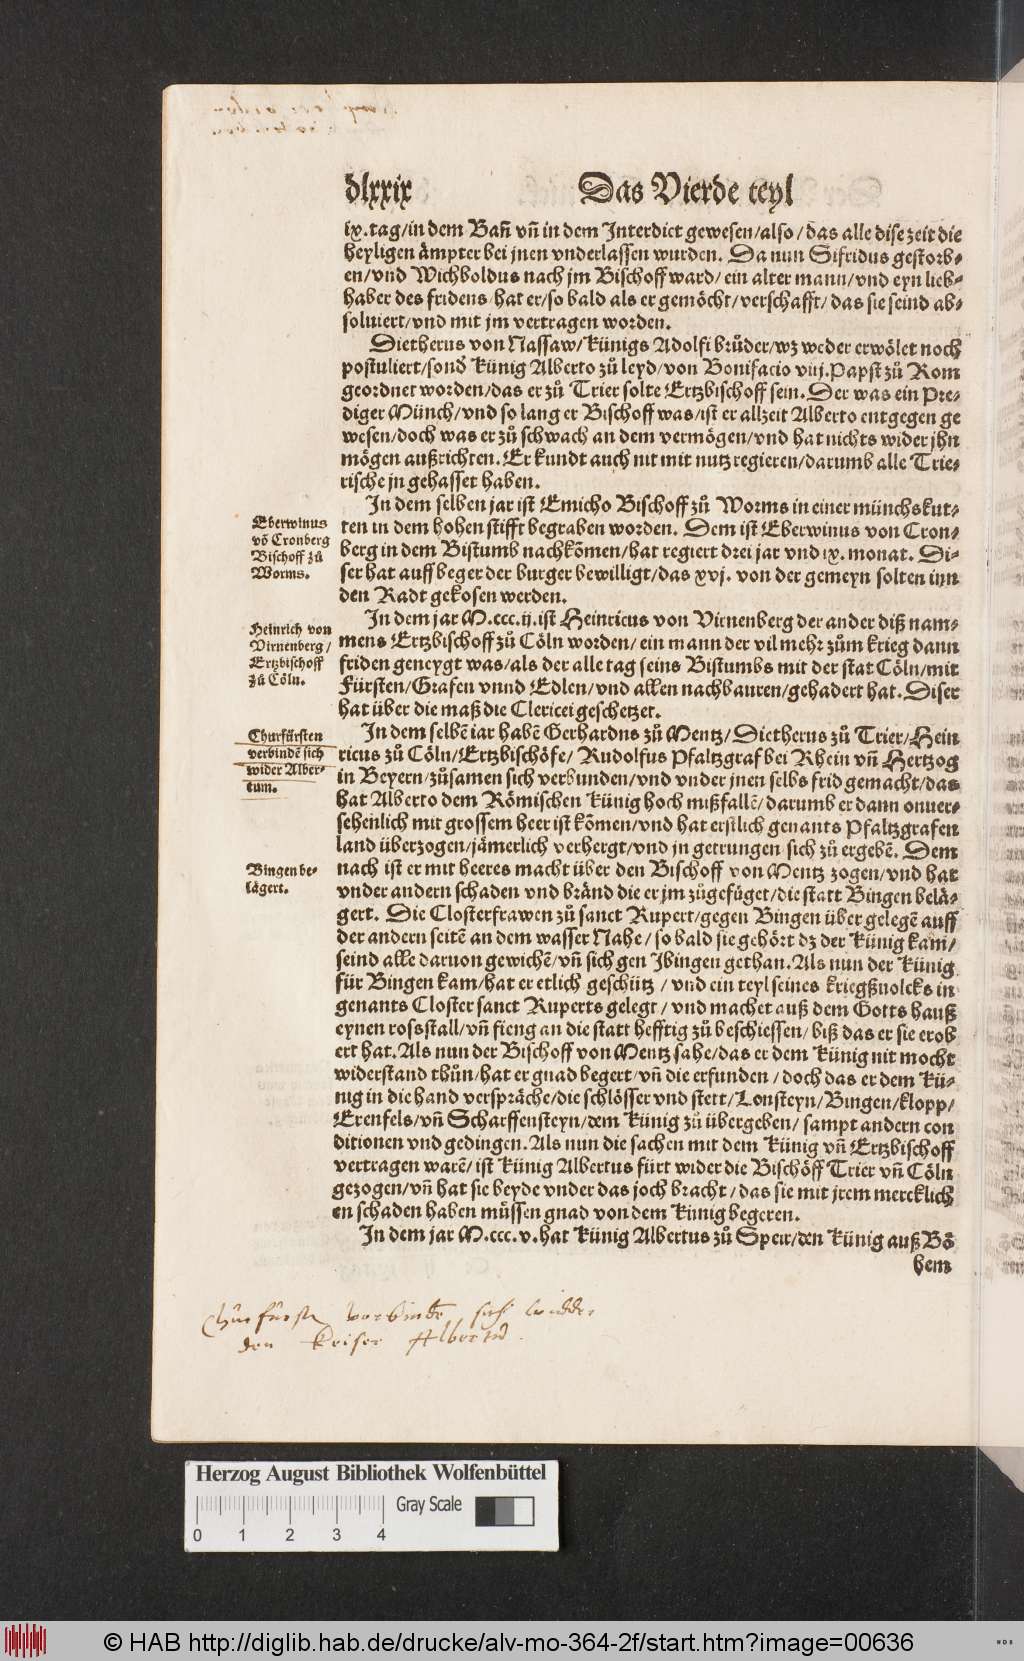 dlxxix Das Vierde teyl
ix.tag/in dem Bañ vñ in dem Interdict gewesen/also/das alle dise zeit die
heyligen ämpter bei jnen vnderlassen wurden. Da nun Sifridus gestorb-
en/vnd Wichboldus nach jm Bischoff ward/ein alter mann/vnd eyn lieb-
haber des fridens/hat er/so bald als er gemöcht/verschafft/das sie seind ab-
soluiert/vnd mit jm vertragen worden.
Dietherus von Nassaw/Künigs Adolfi brůder/wz weder erwölet noch
postuliert/sond' Künig Alberto zů leyd/von Bonifacio viij.Papst zů Rom
geordnet worden/das er zů Trier solte Ertzbischoff sein. Der was ein Pre-
diger Münch/vnd so lang er Bischoff was/ist er allzeit Alberto entgegen ge
wesen/doch was er zů schwach an dem vermögen/vnd hat nichts wider jhn
mögen außrichten. Er kundt auch nit mit nutz regieren/darumb alle Trie-
rische jn gehasset haben.
Eberwinus
võ Cronberg
Bischoff zů
Worms.
In dem selben jar ist Emicho Bischoff zů Worms in einer münchskut-
ten in dem hohen stifft begraben worden. Dem ist Eberwinus von Cron-
berg in dem Bistumb nachkõmen/hat regiert drei jar vnd ix. monat. Di-
ser hat auff beger der burger bewilligt/das xvj. von der gemeyn solten inn
den Radt gekosen werden.
Heinrich von
Virnenberg/
Ertzbischoff
zů Cöln.
In dem jar M.ccc.ij.ist Heinricus von Virnenberg der ander diß nam-
mens Ertzbischoff zů Cöln worden/ein mann der vil mehr zům krieg dann
friden geneygt was/als der alle tag seins Bistumbs mit der stat Cöln/mit
Fürsten/Grafen vnnd Edlen/vnd allen nachbauren/gehadert hat. Diser
hat über die maß die Clericei geschetzet.
Churfürsten
verbindẽ sich
wider Alber-
tum.
In dem selbẽ iar habẽ Gerhardus zů Mentz/Dietherus zů Trier/Hein
ricus zů Cöln/Ertzbischöfe/Rudolfus Pfaltzgraf bei Rhein vñ Hertzog
in Beyern/zůsamen sich verbunden/vnd vnder jnen selbs frid gemacht/das
hat Alberto dem Römischen Künig hoch mißfallẽ/darumb er dann onuer-
sehenlich mit grossem heer ist kõmen/vnd hat erstlich genants Pfaltzgrafen
land überzogen/jämerlich verhergt/vnd jn getrungen sich zů ergebẽ. Dem
Bingen be-
lägert.
nach ist er mit heeres macht über den Bischoff von Mentz zogen/vnd hat
vnder andern schaden vnd bränd die er jm zůgefüget/die statt Bingen belä-
gert. Die Closterfrawen zů sanct Rupert/gegen Bingen über gelegẽ auff
der andern seitẽ an dem wasser Nahe/so bald sie gehört dz der Künig kam/
seind alle daruon gewichẽ/vñ sich gen Ibingen gethan. Als nun der Künig
für Bingen kam/hat er etlich geschütz/vnd ein teyl seines kriegßuolcks in
genants Closter sanct Ruperts gelegt/vnd machet auß dem Gotts hauß
eynen rossstall/vñ fieng an die statt hefftig zů beschiessen/biß das er sie erob
ert hat. Als nun der Bischoff von Mentz sahe/das er dem Künig nit mocht
widerstand thůn/hat er gnad begert/vñ die erfunden/doch das er dem Kü-
nig in die hand verspräche/die schlösser vnd stett/Lonsteyn/Bingen/Klopp/
Erenfels/vñ Scharffensteyn/dem Künig zů übergeben/sampt andern con
ditionen vnd gedingen. Als nun die sachen mit dem Künig vñ Ertzbischoff
vertragen warẽ/ist Künig Albertus fürt wider die Bischöff Trier vñ Cöln
gezogen/vñ hat sie beyde vnder das joch bracht/das sie mit jrem mercklich
en schaden haben müssen gnad von dem Künig begeren.
In dem jar M.ccc.v.hat Künig Albertus zů Speir/den Künig auß Bö
hem
Churfürstẽ verbindẽ sich widder
den keiser Albertũ.
Herzog August Bibliothek Wolfenbüttel
0 1 2 3 4 Gray Scale
© HAB http://diglib.hab.de/drucke/alv-mo-364-2f/start.htm?image=00636